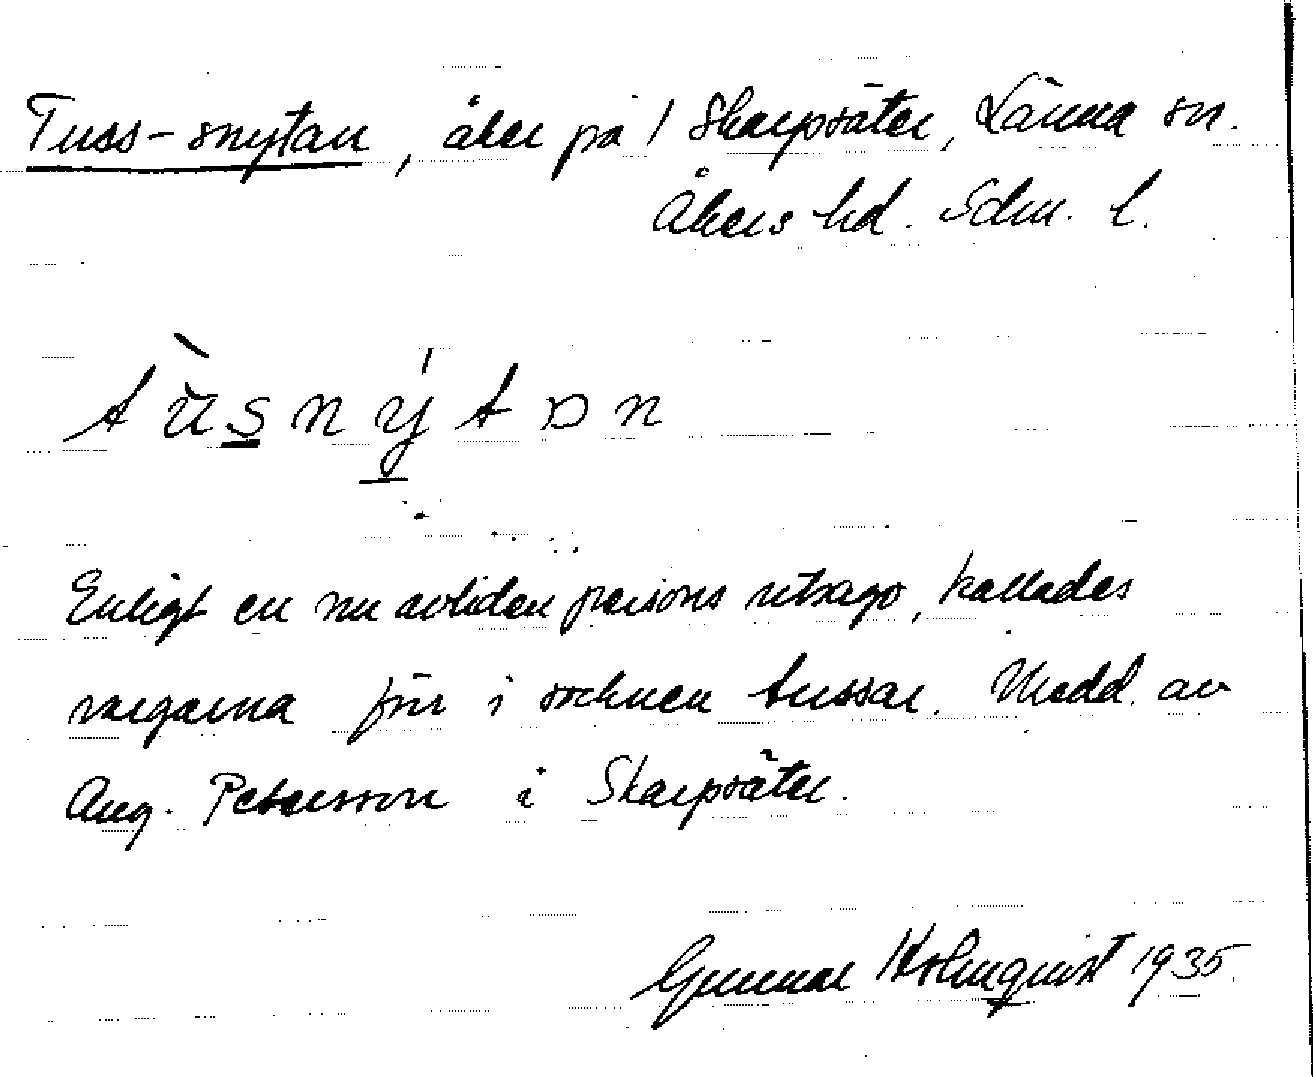 Tuss-snytan, åker på 1 Skarpsäter, Länna sn.
Åkers hd. Sdm. l.
tùsnýtɒn
Enligt en nu avliden persons utsago, kallades
vargarna förr i socknen tussar. Medd. av
Aug. Petersson i Skarpsäter.
Gunnar Holmquist 1935.